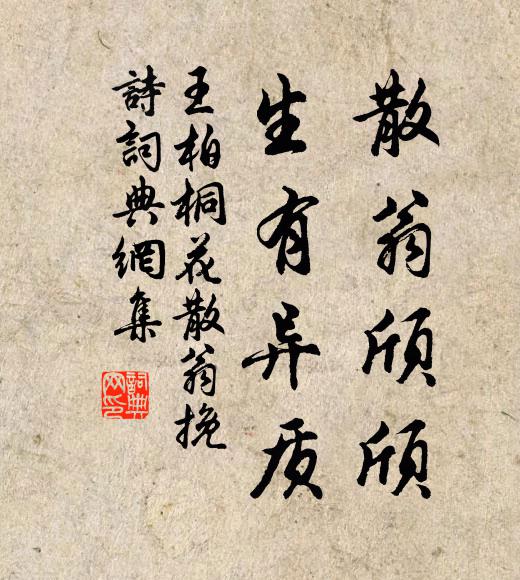 散翁颀颀
生有异质
王柏桐花散翁挽
詩詞典網集
詞典网印